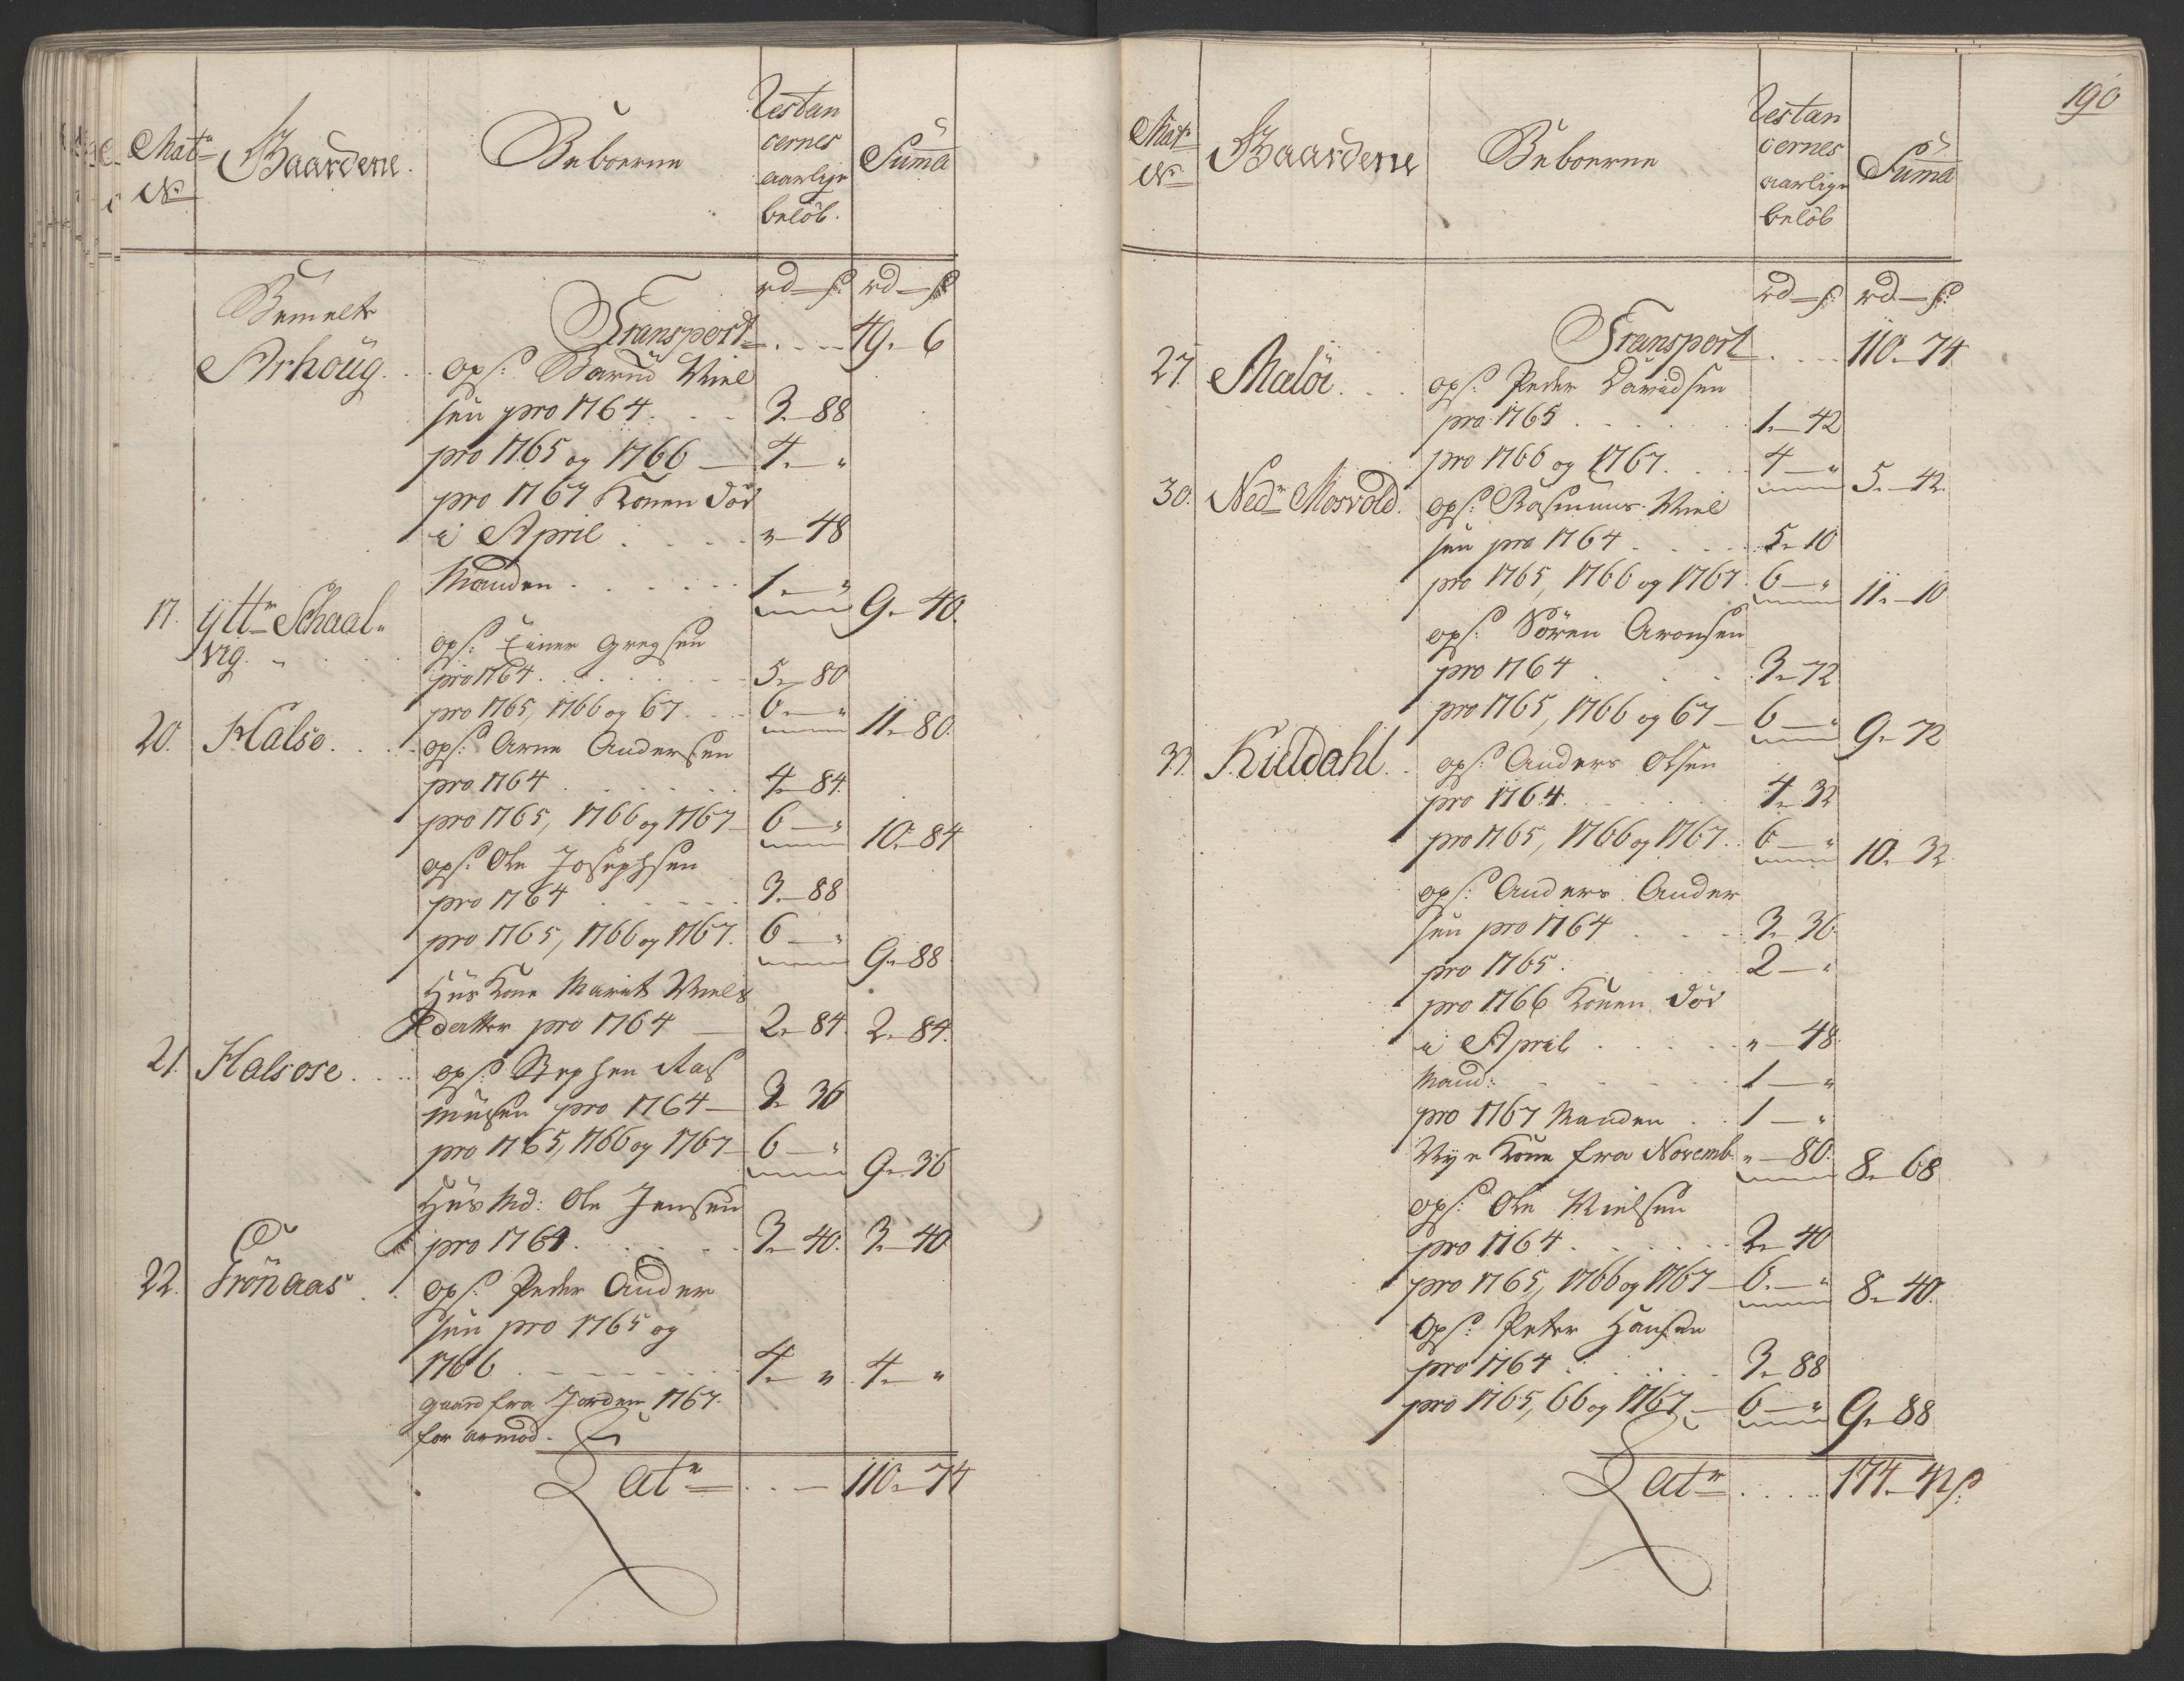 Matr
No
Gaardene.
Beboerne
Restan
cernes
aarlige
beløb.
Suma
rd — s: rd — s:
Bemelte
Transport . . . 49. 6
Arhoug. . . ops: Barud Niel
sen pro 1764. . . 3. 88
pro 1765 og 1766 — 4. "
pro 1767 Konen död
i April . . . . "— 48
Manden . . . . . 1. " 9. 40.
17. ÿttr Schaal=
vig. ops: Einer Gregsen
pro 1764 . . . . . 5. 80
pro 1765, 1766 og 67 . . . 6. — " 11. 80.
20. Halse. . . . ops: Arne Andersen
pro 1764 . . . . . . 4. 84.
pro 1765, 1766 og 1767 — 6 — " 10. 84
ops: Ole Josephsen
pro 1764 . . . . . 3. 88
pro 1765, 1766 og 1767. 6 — " 9. 88
Huskone Marit Niels
datter pro 1764 — 2. 84. 2. 84.
21. Halsose . . . ops: Stephen Ras
mussen pro 1764 — 3. 36
pro 1765, 1766 og 1767 — 6 — " 9. 36
Hus Md: Ole Jensen
pro 1764 . . . . . 3. 40. 3. 40
22. Grönaas . . ops: Peder Ander
sen pro 1765 og
1766 . . . . . . . 4. " 4. "
gaard fra Jorden 1767.
for armod.
Latr . . — 110. 74
190
Matr
No
Gaardene
Beboerne
Restan
cernes
aarlige
beløb
Suma
rd — s: rd — s:
Transport . . . . 110. 74.
27. Maløe. . . . ops: Peder Davidsen
pro 1765 . . . . . . 1. 42
pro 1766 og 1767. . . . 4 — " 5. 42.
30. Nedr Mosvold. ops: Rasmus Niel
sen pro 1764 . . . . 5. 10
pro 1765, 1766 og 1767. 6 — " 11. 10
ops: Sören Aronsen
pro 1764 . . . 3. 72
pro 1765, 1766 og 67 — 6 — " 9. 72
33. Kieldahl. . ops: Anders Olsen
pro 1764. . . . . . 4. 32
pro 1765, 1766 og 1767. . 6 — " 10. 32.
ops: Anders Ander
sen pro 1764 . . . 3. 36.
pro 1765. . . . . . 2 — "
pro 1766 Konen död
i April . . . . . " — 48.
Mand: . . . . . . 1 — "
pro 1767 Manden . . 1 — "
Nye Kone fra Novemb. " — 80. 8. 68
ops: Ole Nielsen
pro 1764. . . . . . 2. 40
pro 1765, 1766 og 1767 — 6. — " 8. 40.
Ops: Peter Hansen
pro 1764 . . . . . 3. 88
pro 1765, 66 og 1767 — 6 — " 9. 88
Latr . . . . 174. 42 s: